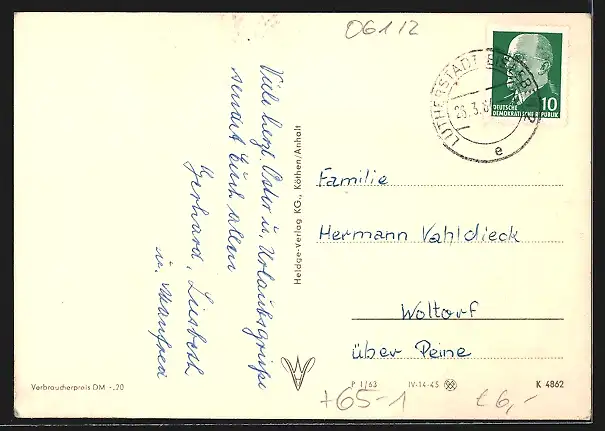 06112
LUTHERSTADT EISLEBEN
e
DEUTSCHE
DEMOKRATISCHE REPUBLIK
10
Viele herzl. Oster u. Urlaubsgrüße
sendet Euch allen
Gerhard, Liesbeth
u. Manfred
Heldge-Verlag KG., Köthen/Anhalt
Familie
Hermann Vahldieck
Woltorf
über Peine
Verbraucherpreis DM -,20
P 1/63 IV-14-45 K 4862
+65-1
€6,-